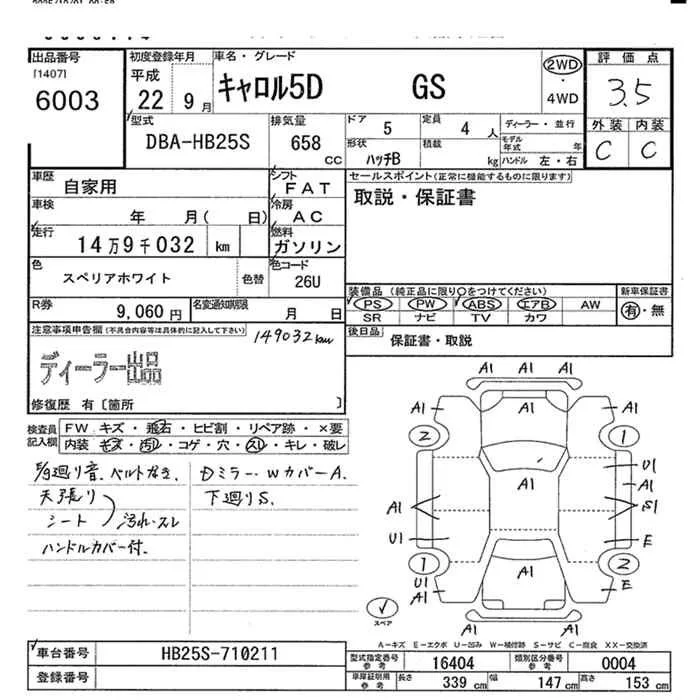 2025/10/01 00:58
出品番号
[1407]
6003
初度登録年月
平成 22 9 月
車名・グレード
キャロル5D GS
2WD
・
4WD
評価点
3.5
外装 内装
C C
型式
DBA-HB25S
排気量
658
CC
ドア 5
定員 4 人
ディーラー・並行
モデル年式 年
形状 ハッチB
積載 kg
ハンドル 左・右
車歴
自家用
シフト
FAT
セールスポイント(正常に機能するものに限ります)
取説・保証書
車検
年 月( 日)
冷房
AC
走行
14万9千032 km
燃料
ガソリン
色
スペリアホワイト
色替
色コード
26U
装備品 (純正品に限り○をつけてください)
新車保証書
PS PW ABS エアB AW
有・無
SR ナビ TV カワ
R券
9,060 円
名変通知期限
月 日
後日品
保証書・取説
注意事項申告欄(不具合内容等は具体的に記入して下さい)
149032km
ディーラー出品
修復歴 有〔箇所 〕
検査員
記入欄
FW キズ・飛石・ヒビ割・リペア跡・×要
内装 キズ・汚れ・コゲ・穴・スレ・キレ・破レ
E/g廻り音、ベルトなき、
天張り
シート
汚れ・スレ
ハンドルカバー付.
Dミラー・WカバーA.
下廻りS.
A1 A1 A1
A1 A1 A1
2 1
U1
A1 A1
A1 S1
U1 E
A1
1 2
U1 E
A1
A1 A1 A1
スペア
A-キズ E-エクボ U-凹み W-補修跡 S-サビ C-腐食 XX-交換済
車台番号
HB25S-710211
登録番号
型式指定番号
参考
16404
類別区分番号
参考
0004
車庫証明用
参考
長さ 339 cm
幅 147 cm
高さ 153 cm